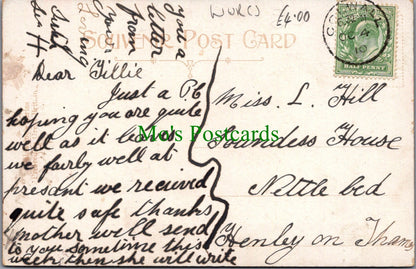 WORCS
£4.00
SOUVENIR POST CARD
Dear Tillie
Just a PC
hoping you are quite
well as it leaves
we fairly well at
presdnt we received
quite safe thanks
mother well send
to you sometime this
week then she will write
you a
letter
from
your
Loving
Sister
H
Miss. L. Hill
Soundess House
Nettle bed
Henley on Thames
Mo's Postcards
HALF PENNY